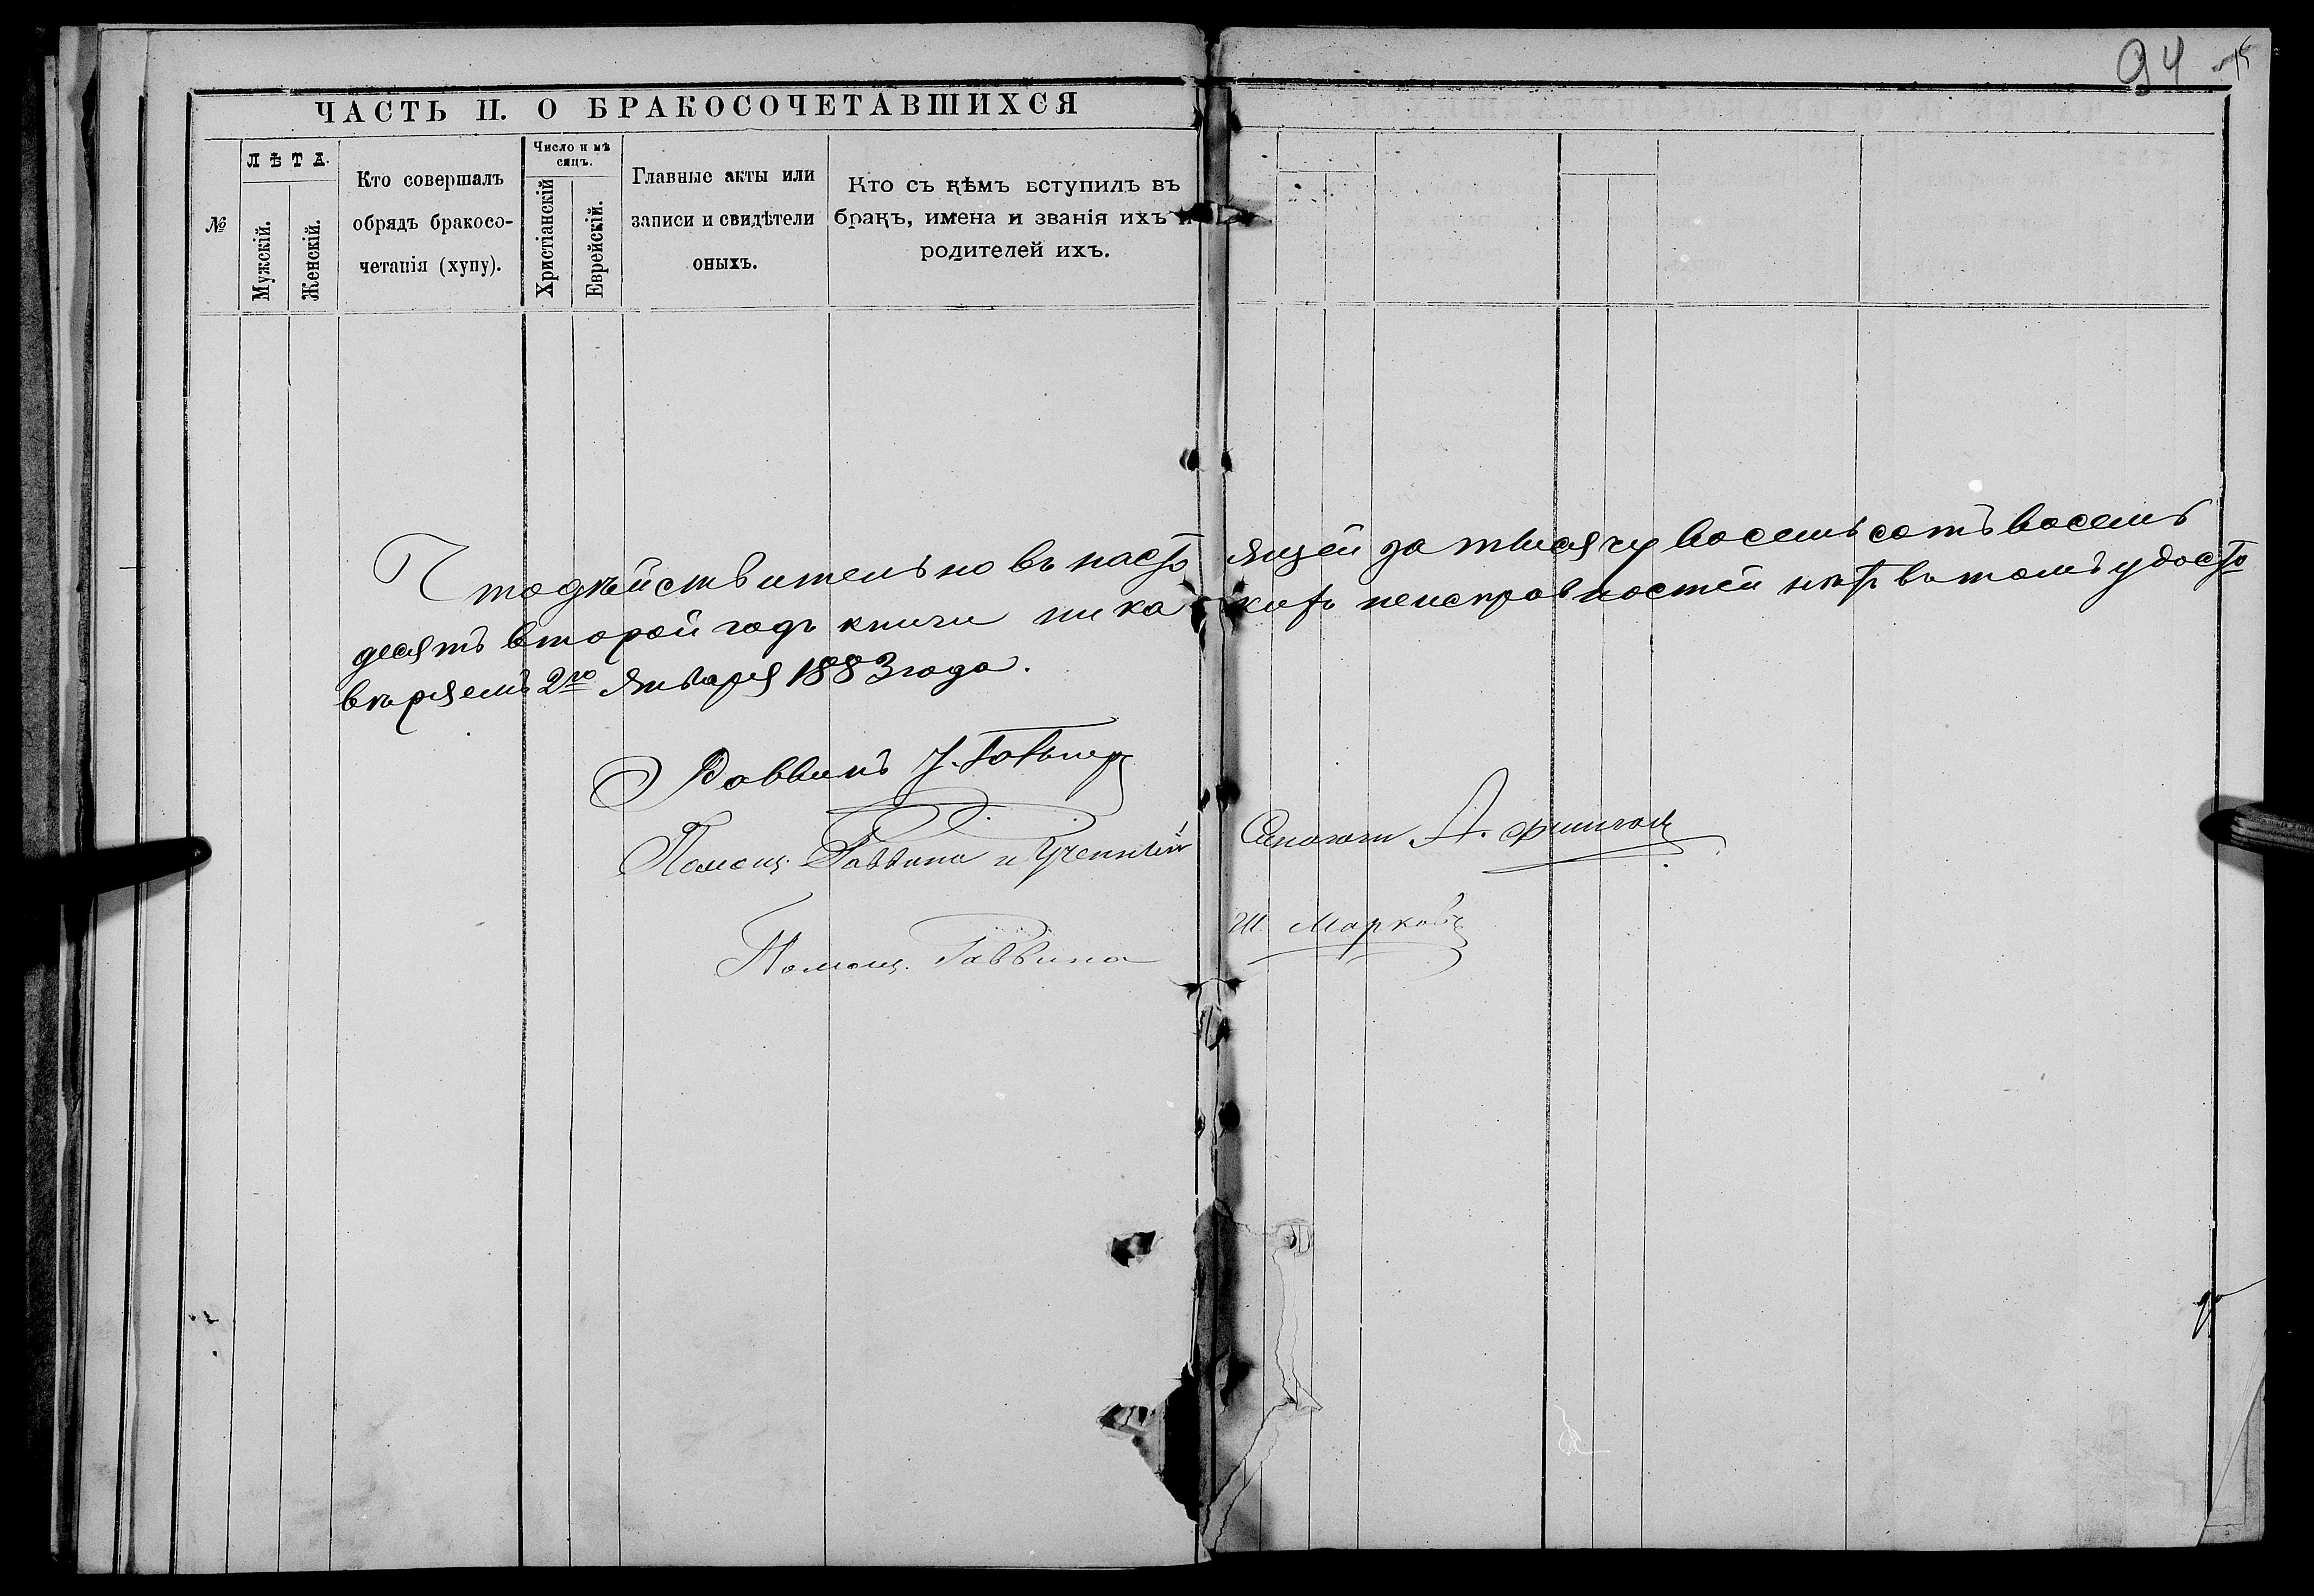 94
ЧАСТЬ II. О БРАКОСОЧЕТАВШИХСЯ
№
ЛѢТА.
Мужскій.
Женскій.
Кто совершалъ
обрядъ бракосо-
четанія (хупу).
Число и мѣ
сяцъ.
Христіанскій
Еврейскій.
Главные акты или
записи и свидѣтели
оныхъ.
Кто съ кѣмъ вступилъ въ
бракъ, имена и званія ихъ и
родителей ихъ.
Что дѣйствительно въ настоящей за тысячу восемьсотъ восемь
десятъ второй годъ книги никакихъ неисправностей нѣтъ въ томъ удосто
вѣряемъ 2го января 1883 года.
Раввинъ
Помощ. Раввина и Ученный Синагоги А.
Помощ. Раввина Ш. Марковъ